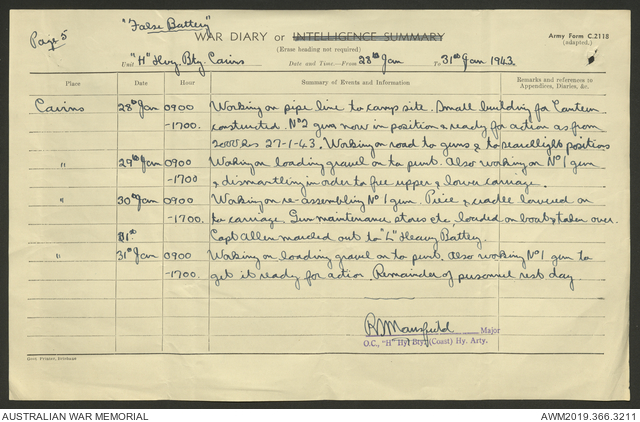 Page 5
"False Battery"
WAR DIARY or INTELLIGENCE SUMMARY
(Erase heading not required)
Army Form C.2118
(adapted.)
Unit "H" Hvy. Bty. Cairns Date and Time—From 28th Jan To 31st Jan 1943.
Place Date Hour Summary of Events and Information Remarks and references to
Appendices, Diaries, &c.
Cairns 28th Jan 0900 Working on pipe line to camp site. Small building for Canteen
-1700. constructed. No 2 gun now in position & ready for action as from
2000hrs 27-1-43. Working on road to guns & to searchlight positions
" 29th Jan 0900 Working on loading gravel on to punt. Also working on No 1 gun
-1700 & dismantling in order to free upper & lower carriage.
" 30th Jan 0900 Working on re-assembling No 1 gun. Piece & cradle lowered on
-1700. to carriage. Gun maintenance stores etc. loaded on boat & taken over.
31st Capt Allen marched out to "L" Heavy Battery.
" 31st Jan 0900 Working on loading gravel on to punt. Also working No 1 gun to
-1700. get it ready for action. Remainder of personnel rest day
R Mansfield Major
O.C., "H" Hy. Bty. (Coast) Hy. Arty.
Govt. Printer, Brisbane
AUSTRALIAN WAR MEMORIAL
AWM2019.366.3211